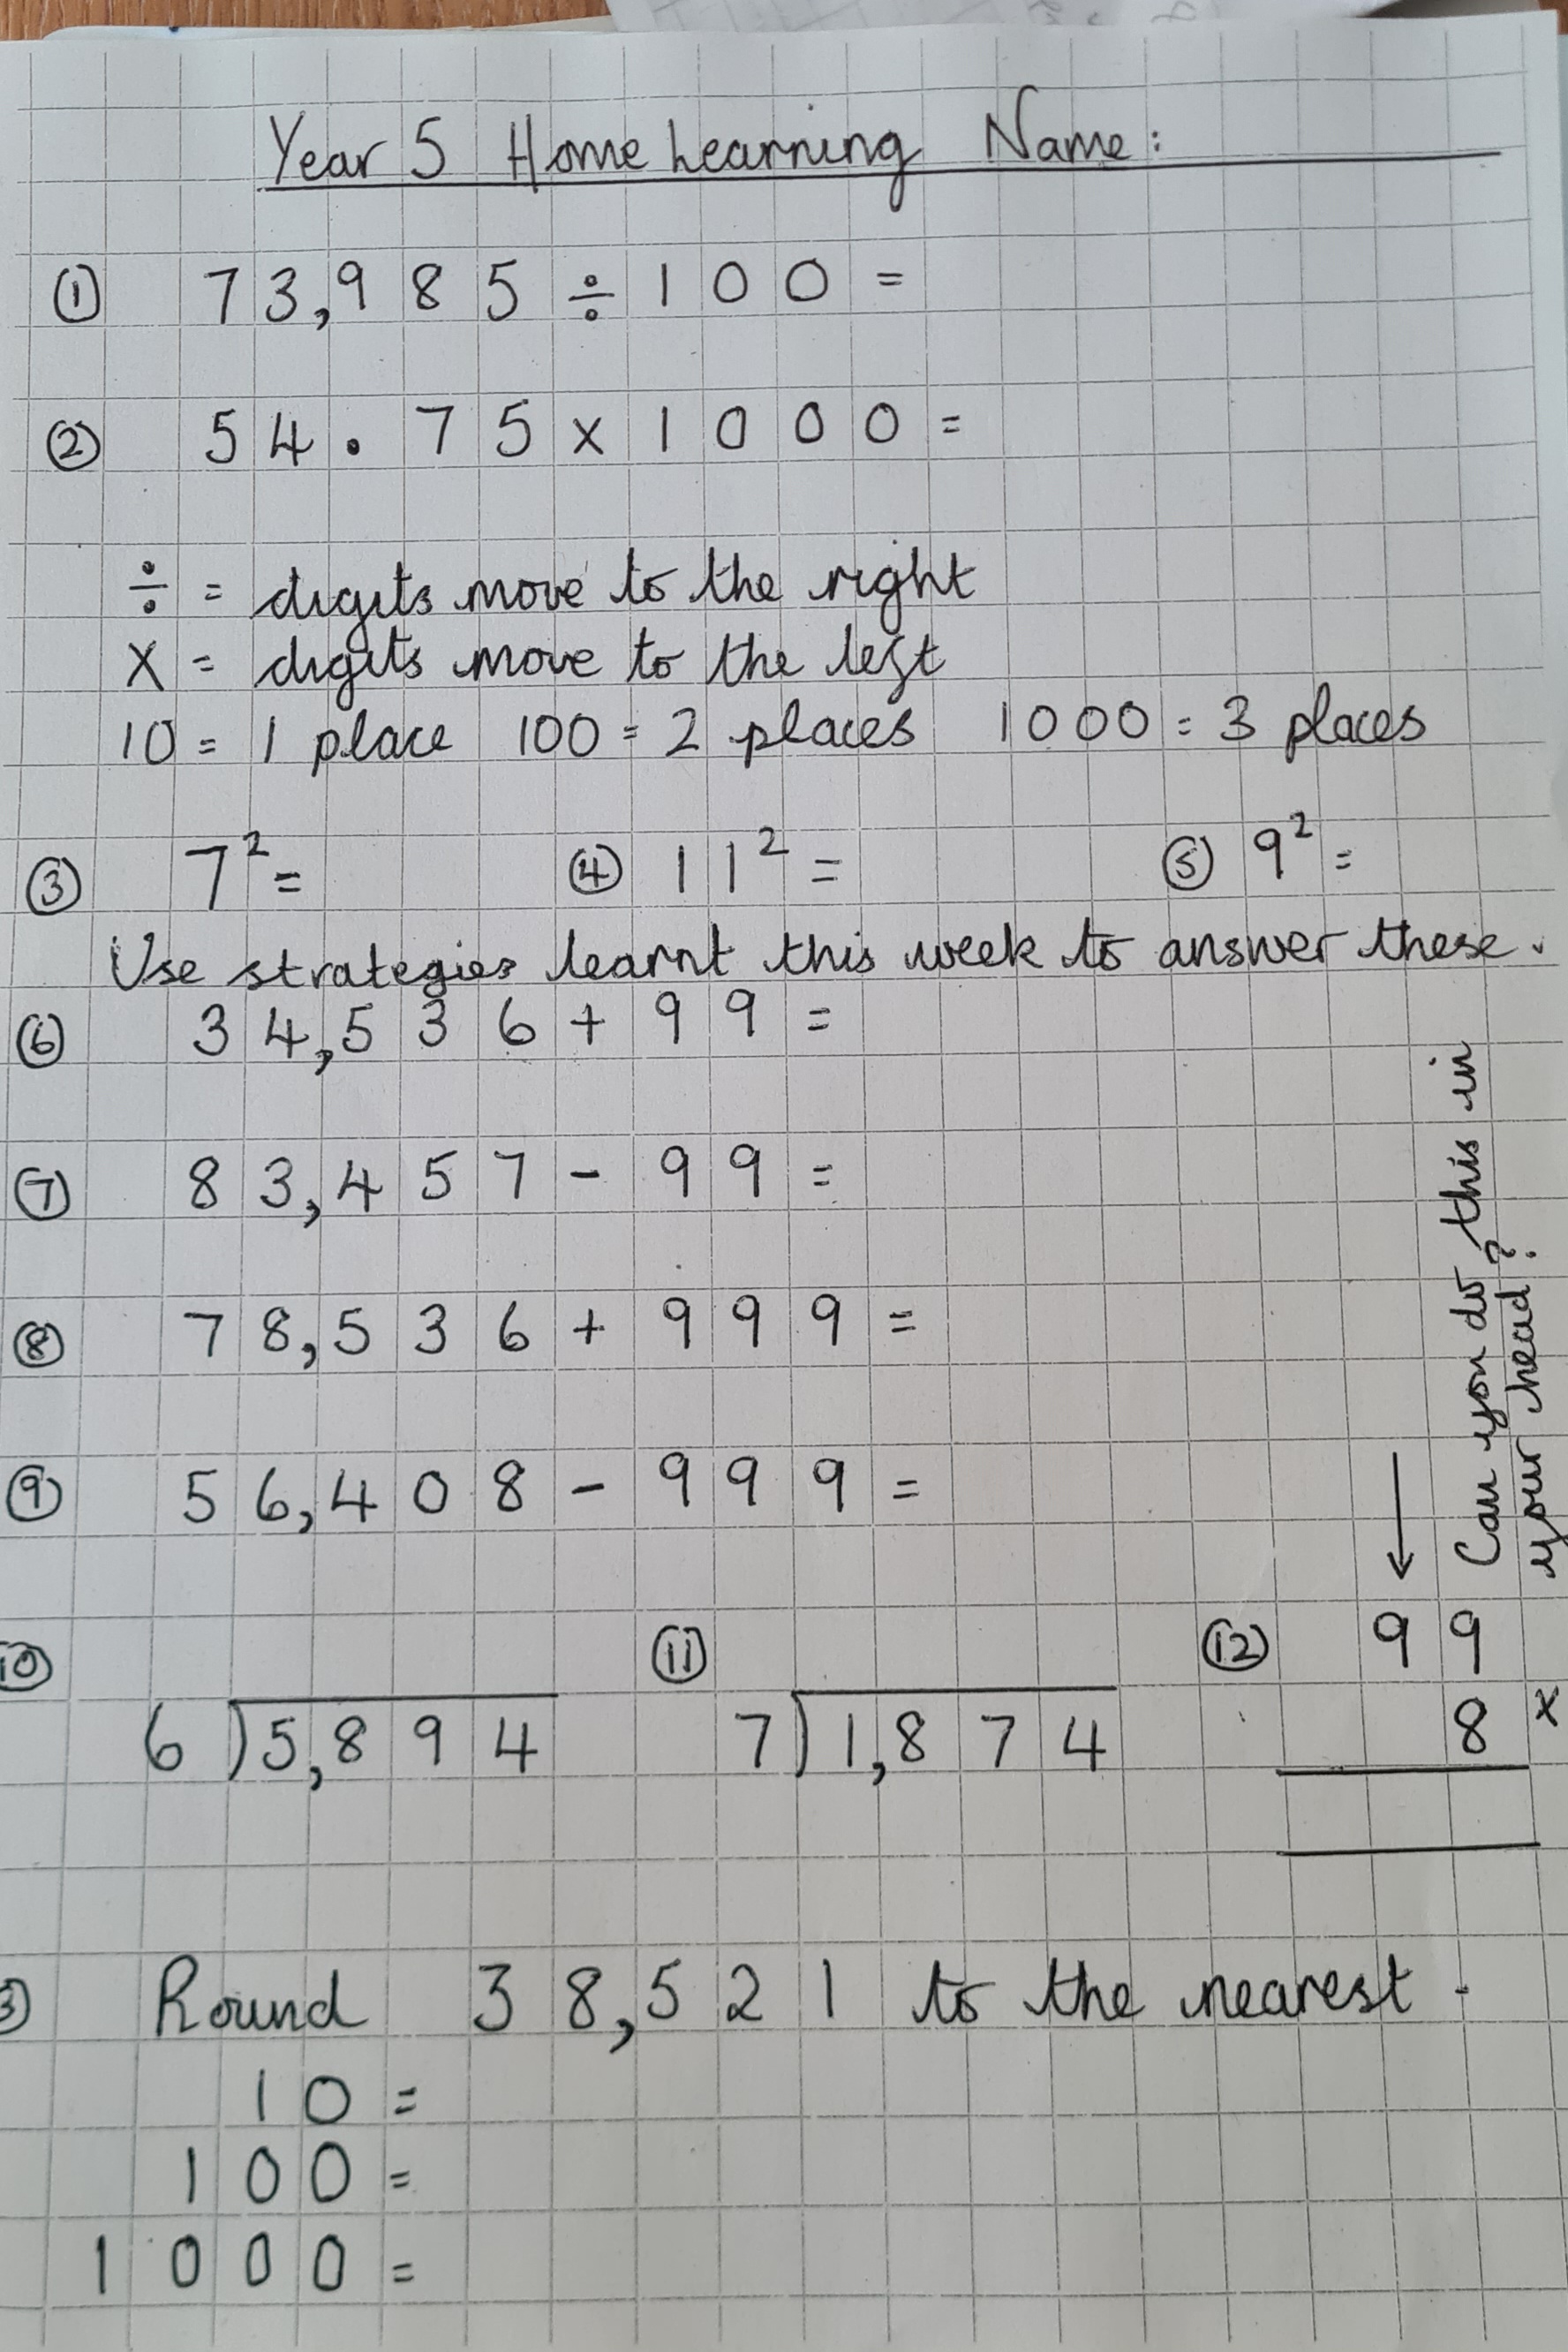 Year 5 Home Learning Name:
① 73,985 ÷ 100 =
② 54.75 x 1000 =
÷ = digits move to the right
x = digits move to the left
10 = 1 place 100 = 2 places 1000 = 3 places
③ 7² = ④ 11² = ⑤ 9² =
Use strategies learnt this week to answer these.
⑥ 34,536 + 99 =
⑦ 83,457 - 99 =
⑧ 78,536 + 999 =
⑨ 56,408 - 999 =
Can you do this in
your head?
⑩ 6)5,894
⑪ 7)1,874
⑫ 99
8 x
3 Round 38,521 to the nearest -
10 =
100 =
1000 =